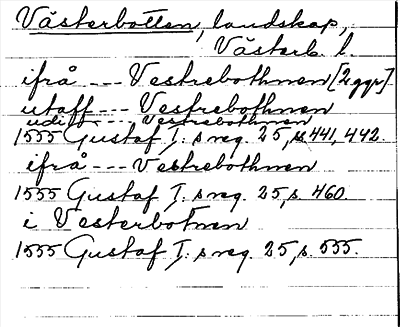 Västerbotten, landskap,
Västerb. l.
ifrå --- Vestrebothnen [2 ggr]
utaff --- Vestrebothnen
udi --- Vestrebothnen
1555 Gustaf I:s reg. 25, s. 441, 442.
ifrå --- Vestrebothnen
1555 Gustaf I:s reg. 25, s. 460.
i Vesterbotnen
1555 Gustaf I:s reg. 25, s. 555.